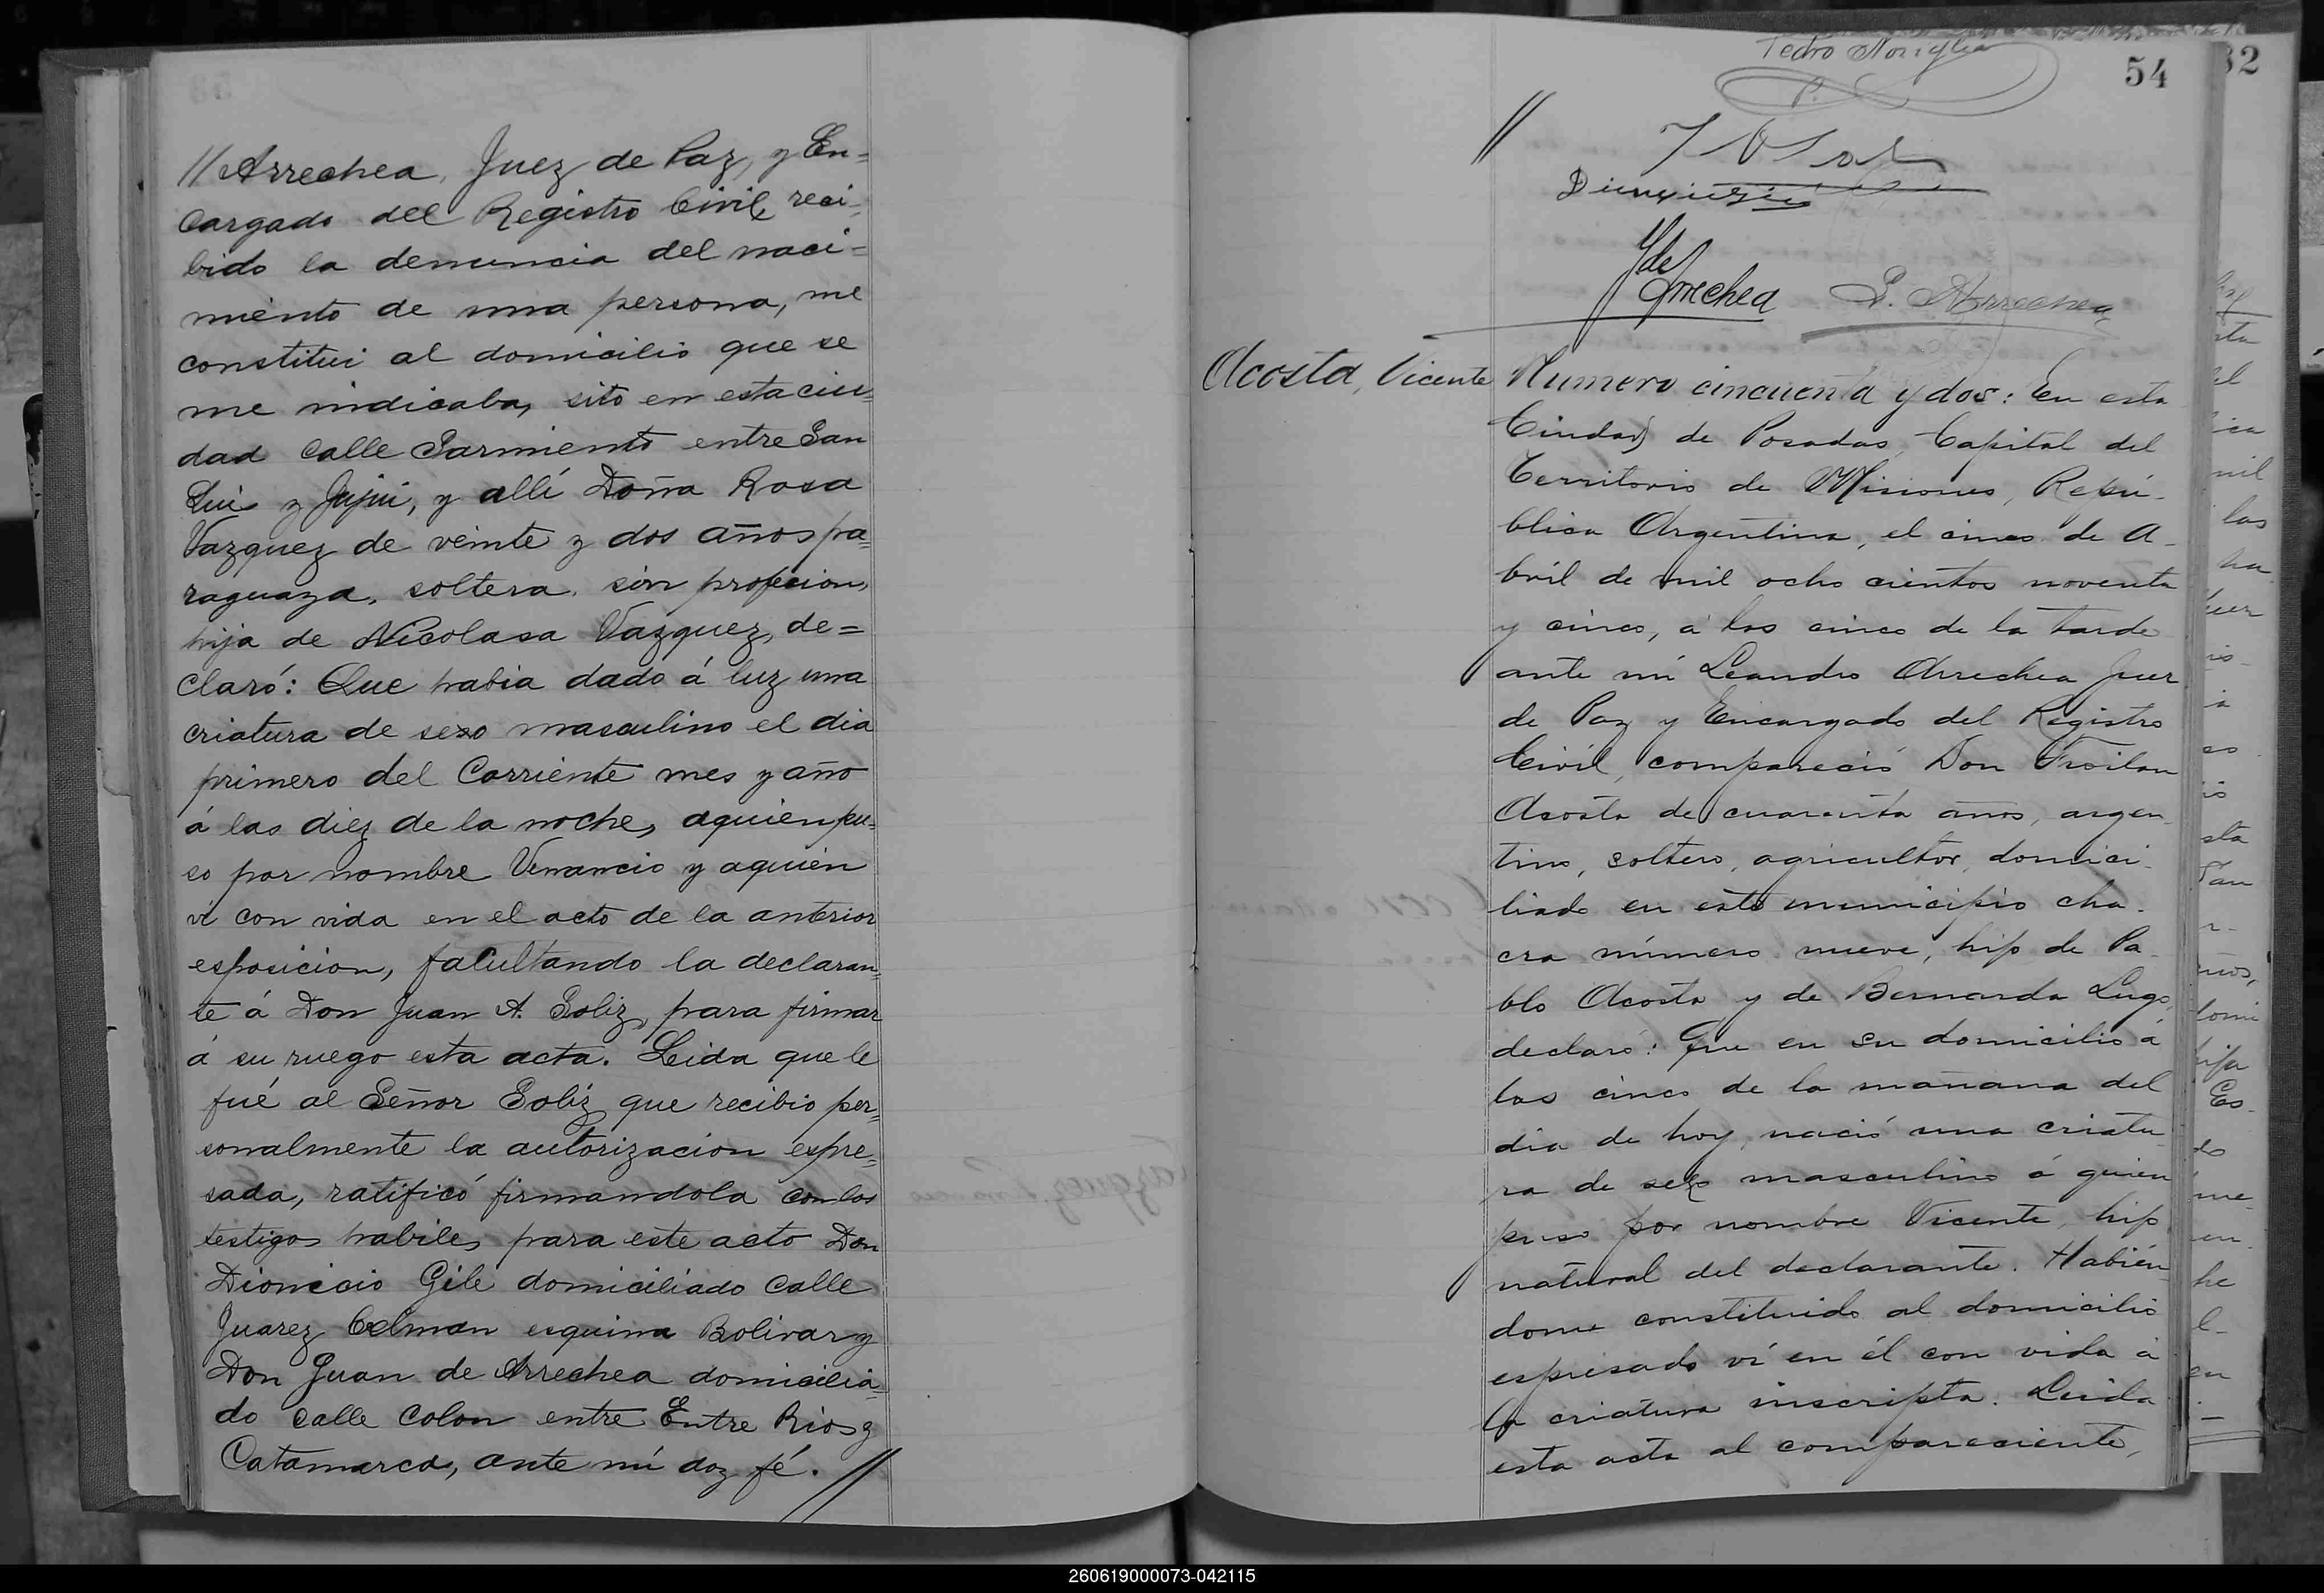 // Arrechea, Juez de Paz, y En=
cargado del Registro Civil, reci=
bido la denuncia del naci=
miento de una persona, me
constitui al domicilio que se
me indicaba, sito en esta ciu=
dad calle Sarmiento entre San
Luis y Jujui, y allí Doña Rosa
Vazquez de veinte y dos años pa=
raguaya, soltera, sin profecion,
hija de Nicolasa Vazquez, de=
claró: Que habia dado á luz una
criatura de sexo masculino el dia
primero del corriente mes y año
á las diez de la noche, aquien pu=
so por nombre Venancio y aquien
ví con vida en el acto de la anterior
esposicion, facultando la declaran=
te á Don Juan A. Soliz, para firmar
á su ruego esta acta. Leida que le
fué al Señor Soliz que recibio per=
sonalmente la autorizacion espre=
sada, ratificó firmandola con los
testigos habiles para este acto Don
Dionicio Gile domiciliado calle
Juarez Celman esquina Bolivar y
Don Juan de Arrechea domicilia=
do calle Colon entre Entre Rios y
Catamarca, ante mí doy fé. //
32
54
Pedro
P.
//
J de
Arrechea L. Arrechea
Acosta, Vicente
Numero cincuenta y dos: En esta
Ciudad de Posadas, Capital del
Territorio de Misiones, Repú-
blica Argentina, el cinco de A-
bril de mil ocho cientos noventa
y cinco, á las cinco de la tarde
ante mí Leandro Arrechea Juez
de Paz y Encargado del Registro
Civil, compareció Don Froilan
Acosta de cuarenta años, argen-
tino, soltero, agricultor, domici-
liado en este municipio cha-
cra número nueve, hijo de Pa-
blo Acosta y de Bernarda Lugo,
declaró: Que en su domicilio á
las cinco de la mañana del
dia de hoy, nació una criatu-
ra de sexo masculino á quien
puso por nombre Vicente, hijo
natural del declarante. Habién-
dome constituido al domicilio
espresado ví en él con vida á
la criatura inscripta. Leida
esta acta al compareciente,
260619000073-042115